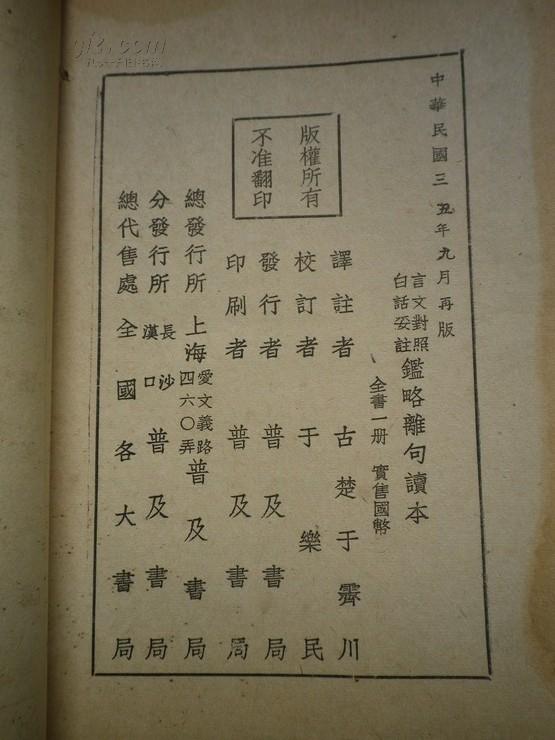 中華民國三五年九月再版
言文對照
白話妥註
鑑略離句讀本
全書一册 實售國幣
版權所有
不准翻印
譯註者 古楚于霽川
校訂者 于樂民
發行者 普及書局
印刷者 普及書局
總發行所 上海愛文義路四六〇弄普及書局
分發行所 長沙漢口普及書局
總代售處 全國各大書局